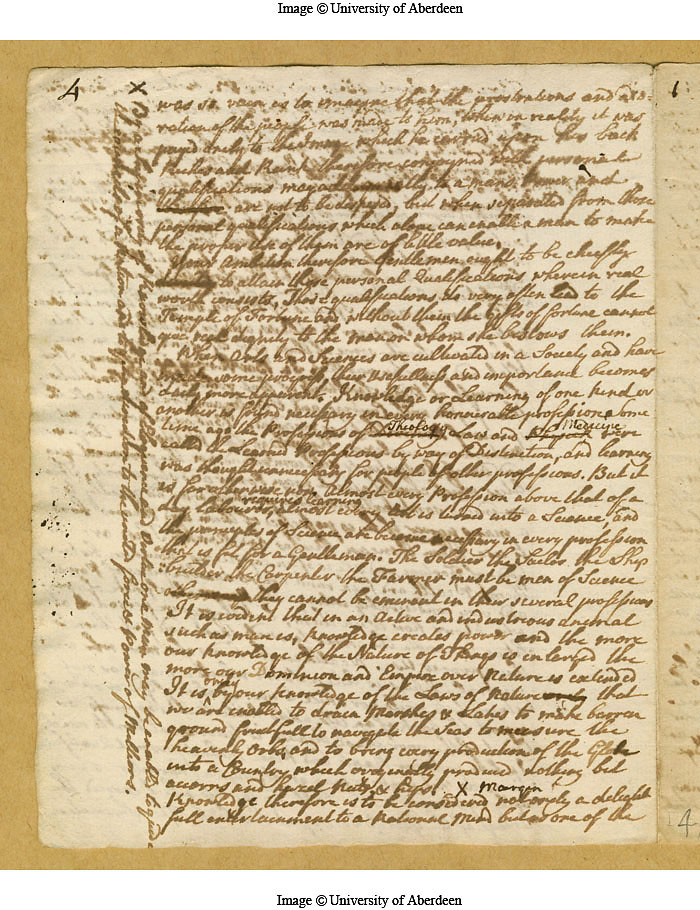 Image © University of Aberdeen
4
1
was so vain as to imagine that the prostrations and ado-
ration of the people was made to him, when in reality it was
paid only to the Image which he carried upon his back
Riches and Rank therefore conjoyned with personal
qualifications may add to a mans Power and
are not to be despised, but when separated from those
personal qualifications which alone can enable a man to make
the proper use of them are of little value.
Your Ambition therefore Gentlemen ought to be cheifly
to attain those personal Qualifications wherein real
worth consists. Those qualifications do very often lead to the
Temple of Fortune but without them the Gifts of fortune cannot
give real dignity to the man on whom she bestows them.
When Arts and Sciences are cultivated in a Society and have
made some progress their usefullness and importance becomes
daily more apparent. Knowledge or Learning of one kind or
another is found necessary in every honourable profession. Some
time ago the Professions of Theology Law and Medicine were
called the Learned Professions by way of Distinction, and learning
was thought unnecessary for people of other professions. But it
is far otherwise now almost every Profession above that of a
requires learning
day labourer, almost every Art is turned into a Science, and
the principles of Science are become necessary in every profession
that is fit for a Gentleman. The Soldier the Sailor the Ship
builder the Carpenter the Farmer must be men of Science
they cannot be eminent in their several professions
It is evident that in an Active and industrious animal
such as man is, knowledge creates power and the more
our knowledge of the Nature of Things is enlarged the
more our Dominion and Empire over Nature is extended
It is only by our knowledge of the Laws of Nature that
we are enabled to drain Marshes & Lakes to make barren
ground fruitfull to navigate the Seas to measure the
heavenly Orbs, and to bring every production of the Globe
into a Country which originally produced nothing but
acorns and hazel Nuts & hips. X Margin
Knowledge therefore is to be considered not only a delight
full entertainment to a Rational Mind but as one of the
X By the force of Knowledge of and Order one Man may be enabled to give
the to the united force & Power of Millions.
4
Image © University of Aberdeen